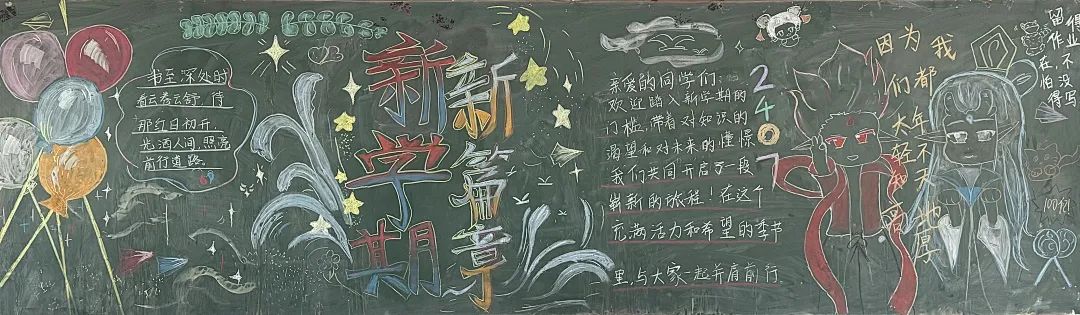 事至深处时
看云卷云舒,待
那红日初升,
光洒人间,照亮
前行道路。
新学期
新篇章
亲爱的同学们:
欢迎踏入新学期的
门槛,带着对知识的
渴望和对未来的憧憬
我们共同开启了一段
崭新的旅程!在这个
充满活力和希望的季节
里,与大家一起并肩前行
2407
因为我
们都
年轻不
天高地厚
留得
作业
在,不
怕没
得写